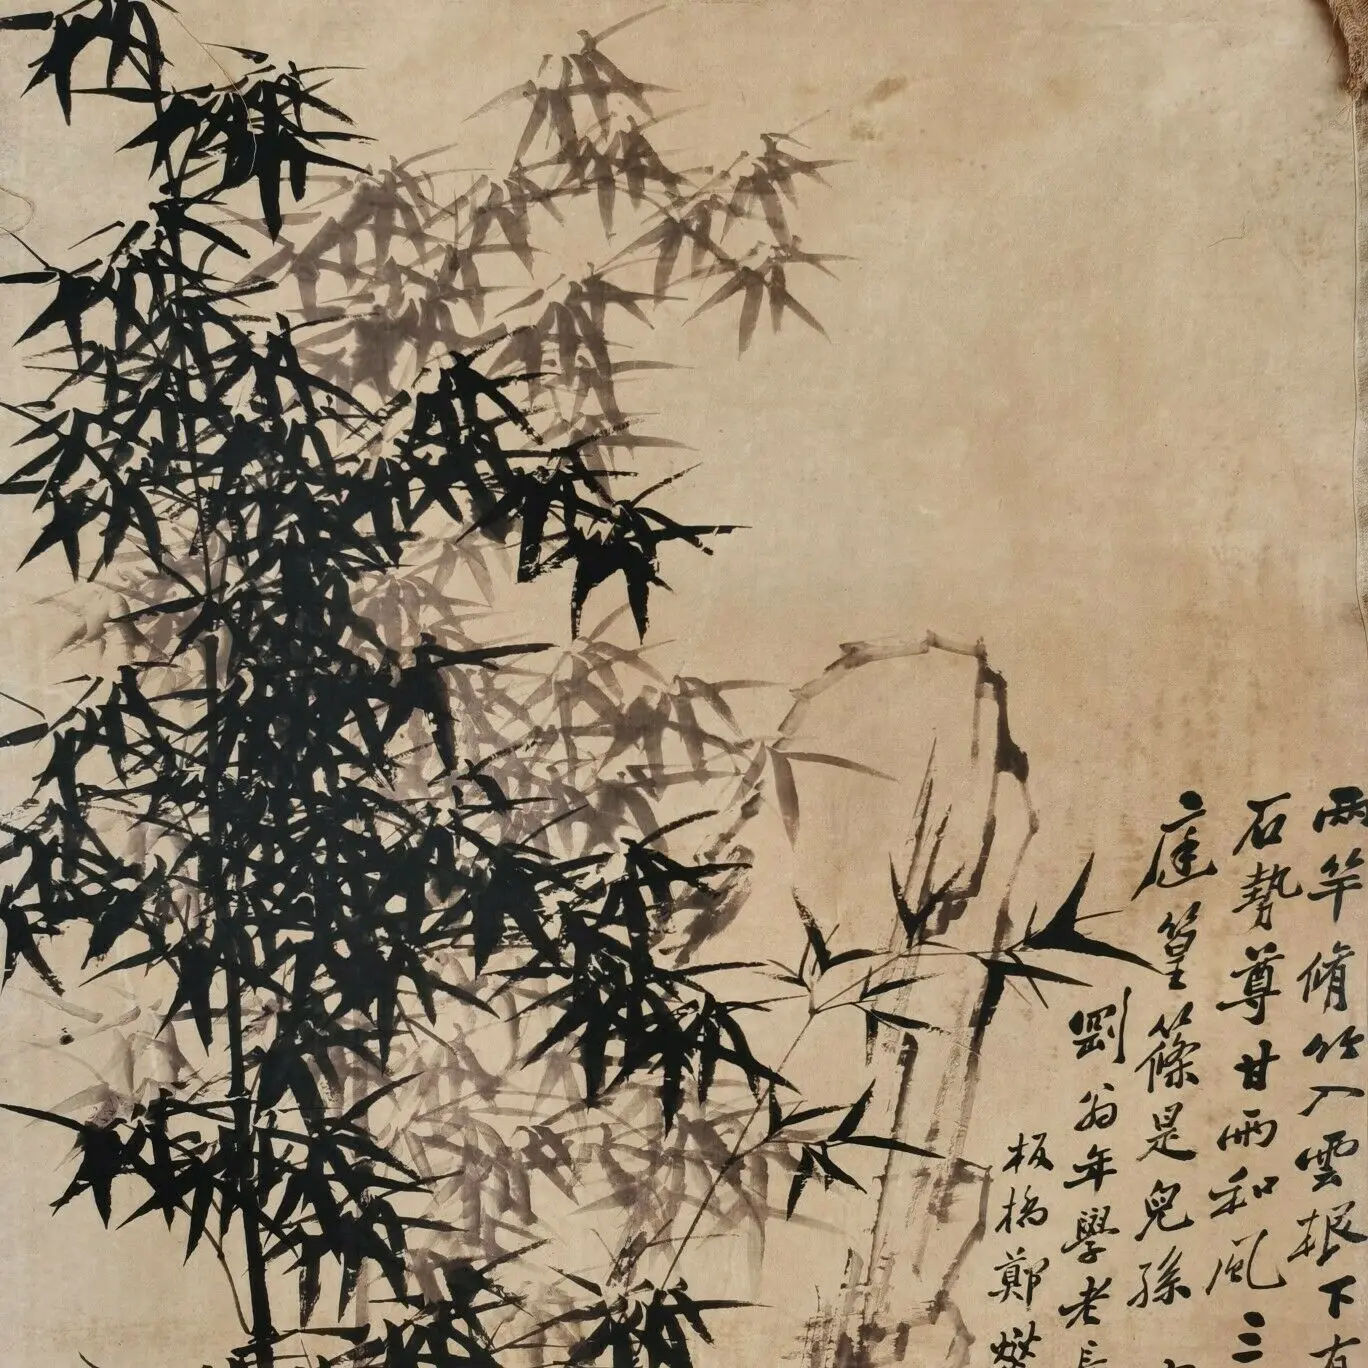 兩竿脩竹入雲根下有
石勢尊甘雨和風三
庭篁篠是兒孫
劉翁年學老長
板橋鄭燮